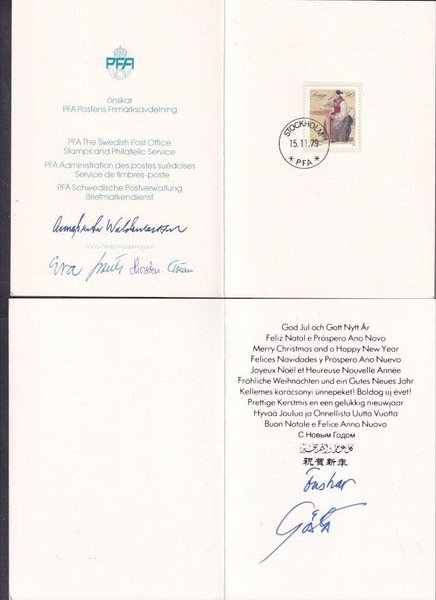 PFA
önskar
PFA Postens Frimärksavdelning
PFA The Swedish Post Office
Stamps and Philatelic Service
PFA Administration des postes suédoises
Service de timbres-poste
PFA Schwedische Postverwaltung
Briefmarkendienst
Eva
Torsten
Göran
Sverige 90
STOCKHOLM
15.11.79
* PFA *
God Jul och Gott Nytt År
Feliz Natal e Próspero Ano Novo
Merry Christmas and a Happy New Year
Felices Navidades y Próspero Ano Nuevo
Joyeux Noël et Heureuse Nouvelle Année
Fröhliche Weihnachten und ein Gutes Neues Jahr
Kellemes karácsonyi ünnepeket! Boldog uj évet!
Prettige Kerstmis en een gelukkig nieuwjaar
Hyvää Joulua ja Onnellista Uutta Vuotta
Buon Natale e Felice Anno Nuovo
С Новым Годом
祝賀新年
önskar
Gösta